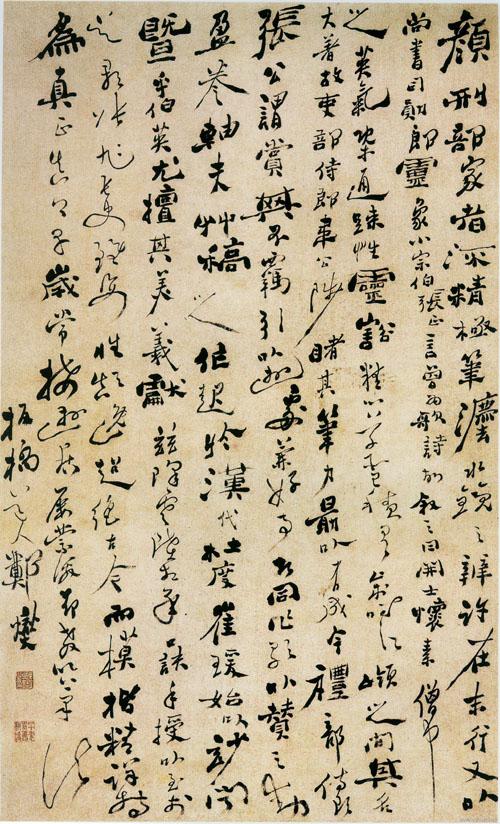 顏刑部家者流精極筆法水鏡之辨許在末行又以
尚書司勳郎盧象小宗伯張正言曾為歌詩故敘之曰開士懷素僧中
之英氣槩通疎性靈豁暢精心草聖積有歲時江嶺之間其名
大著故吏部侍郎韋公陟睹其筆力最以有成今禮部侍郎
張公謂賞其不羈引以遊處兼好事者同作歌以贊之動
盈卷軸夫草稿之作起於漢代杜度崔瑗始以妙聞
暨乎伯英尤擅其美羲獻茲降虞陸相承口訣手授以至於
吳郡張旭長史雖姿性顛逸超絕古今而模楷精詳特
為真正真卿早歲常接遊居屢蒙激昂教以筆法
板橋道人鄭燮